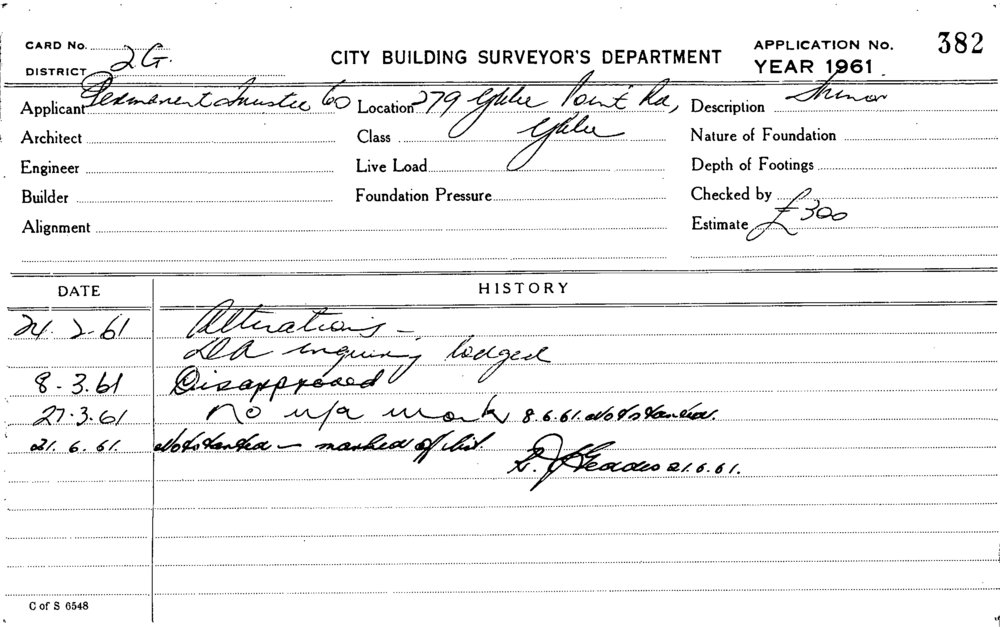 CARD No.
DISTRICT 2G.
CITY BUILDING SURVEYOR'S DEPARTMENT
APPLICATION No. 382
YEAR 1961
Applicant Permanent Trustee Co Location 279 Glebe Point Rd, Description
Architect Class Glebe Nature of Foundation
Engineer Live Load Depth of Footings
Builder Foundation Pressure Checked by
Alignment Estimate £300
DATE HISTORY
24.2.61 Alterations -
DA inquiry lodged
8.3.61 Disapproved
27.3.61 No u/a work 8.6.61. Not started.
21.6.61. Not started - marked off list.
Geddes 21.6.61.
C of S 6548